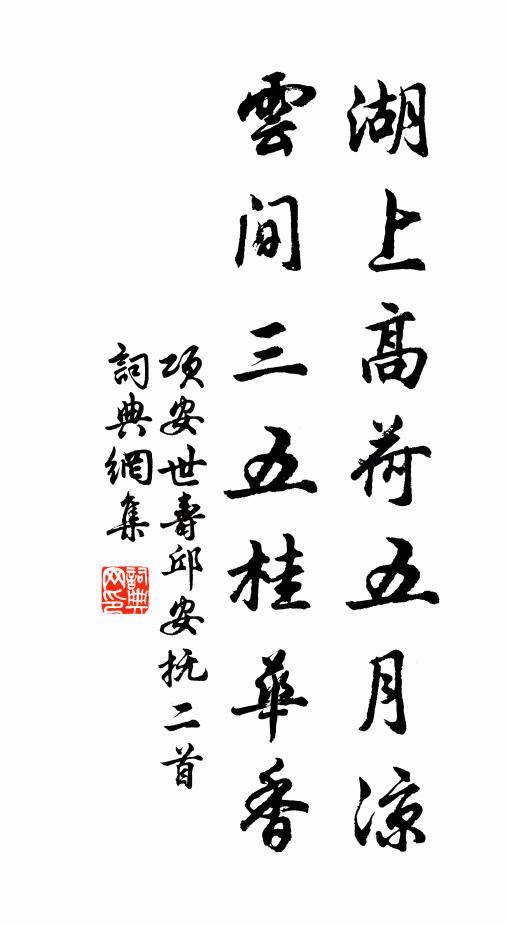 湖上高荷五月凉
雲间三五桂華香
项安世壽邱安抚二首
詞典網集
詞典网印